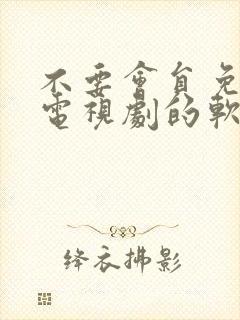 不要會員免
電視劇的軟
绛衣拂影